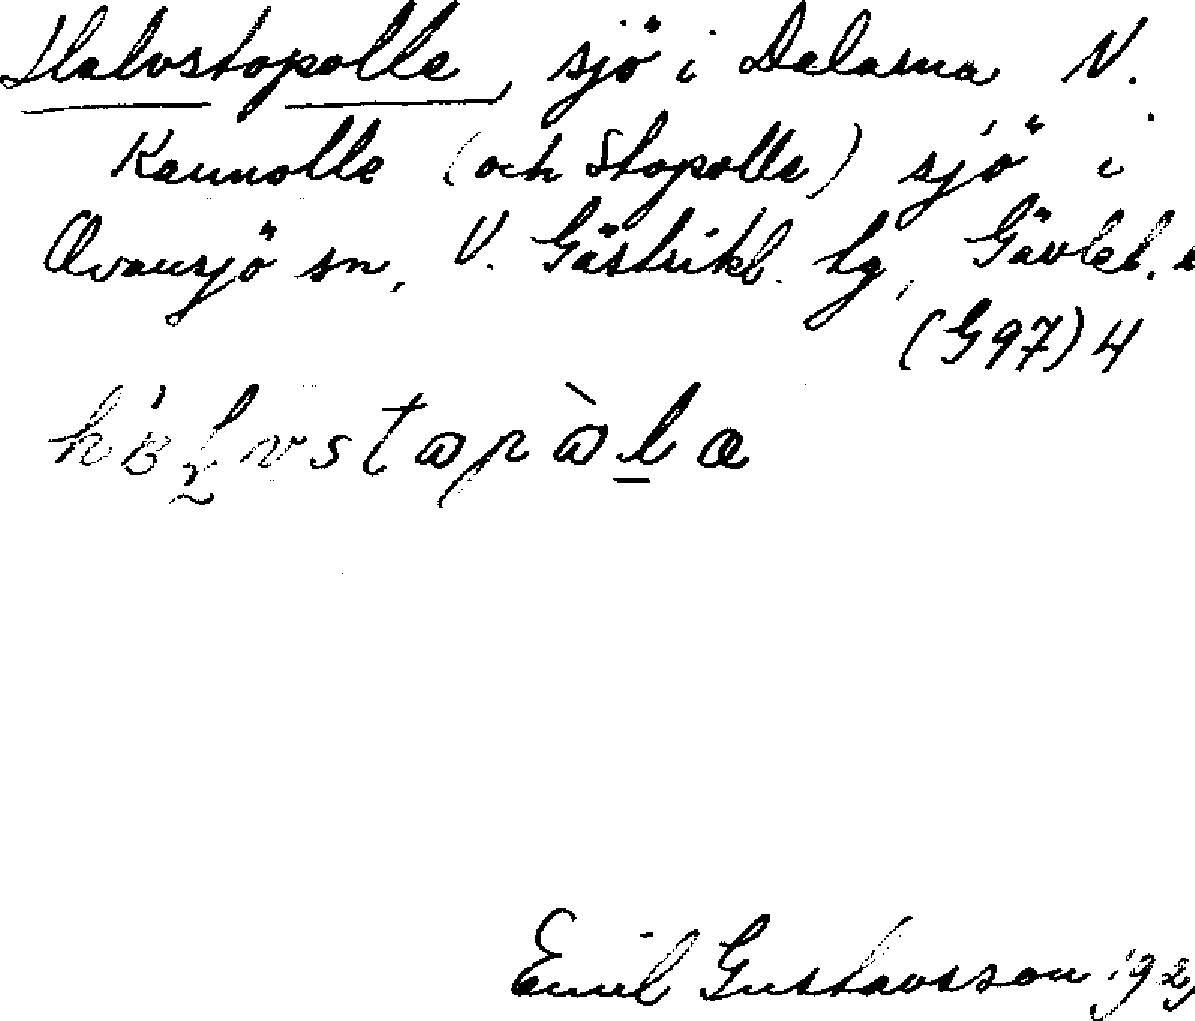 Halvstopolle, sjö i Dalarna N.
Kannolle (och Stopolle) sjö i
Ovansjö sn, V. Gästrikl. tg, Gävleb.
(G97) 4
Emil Gustavsson 192